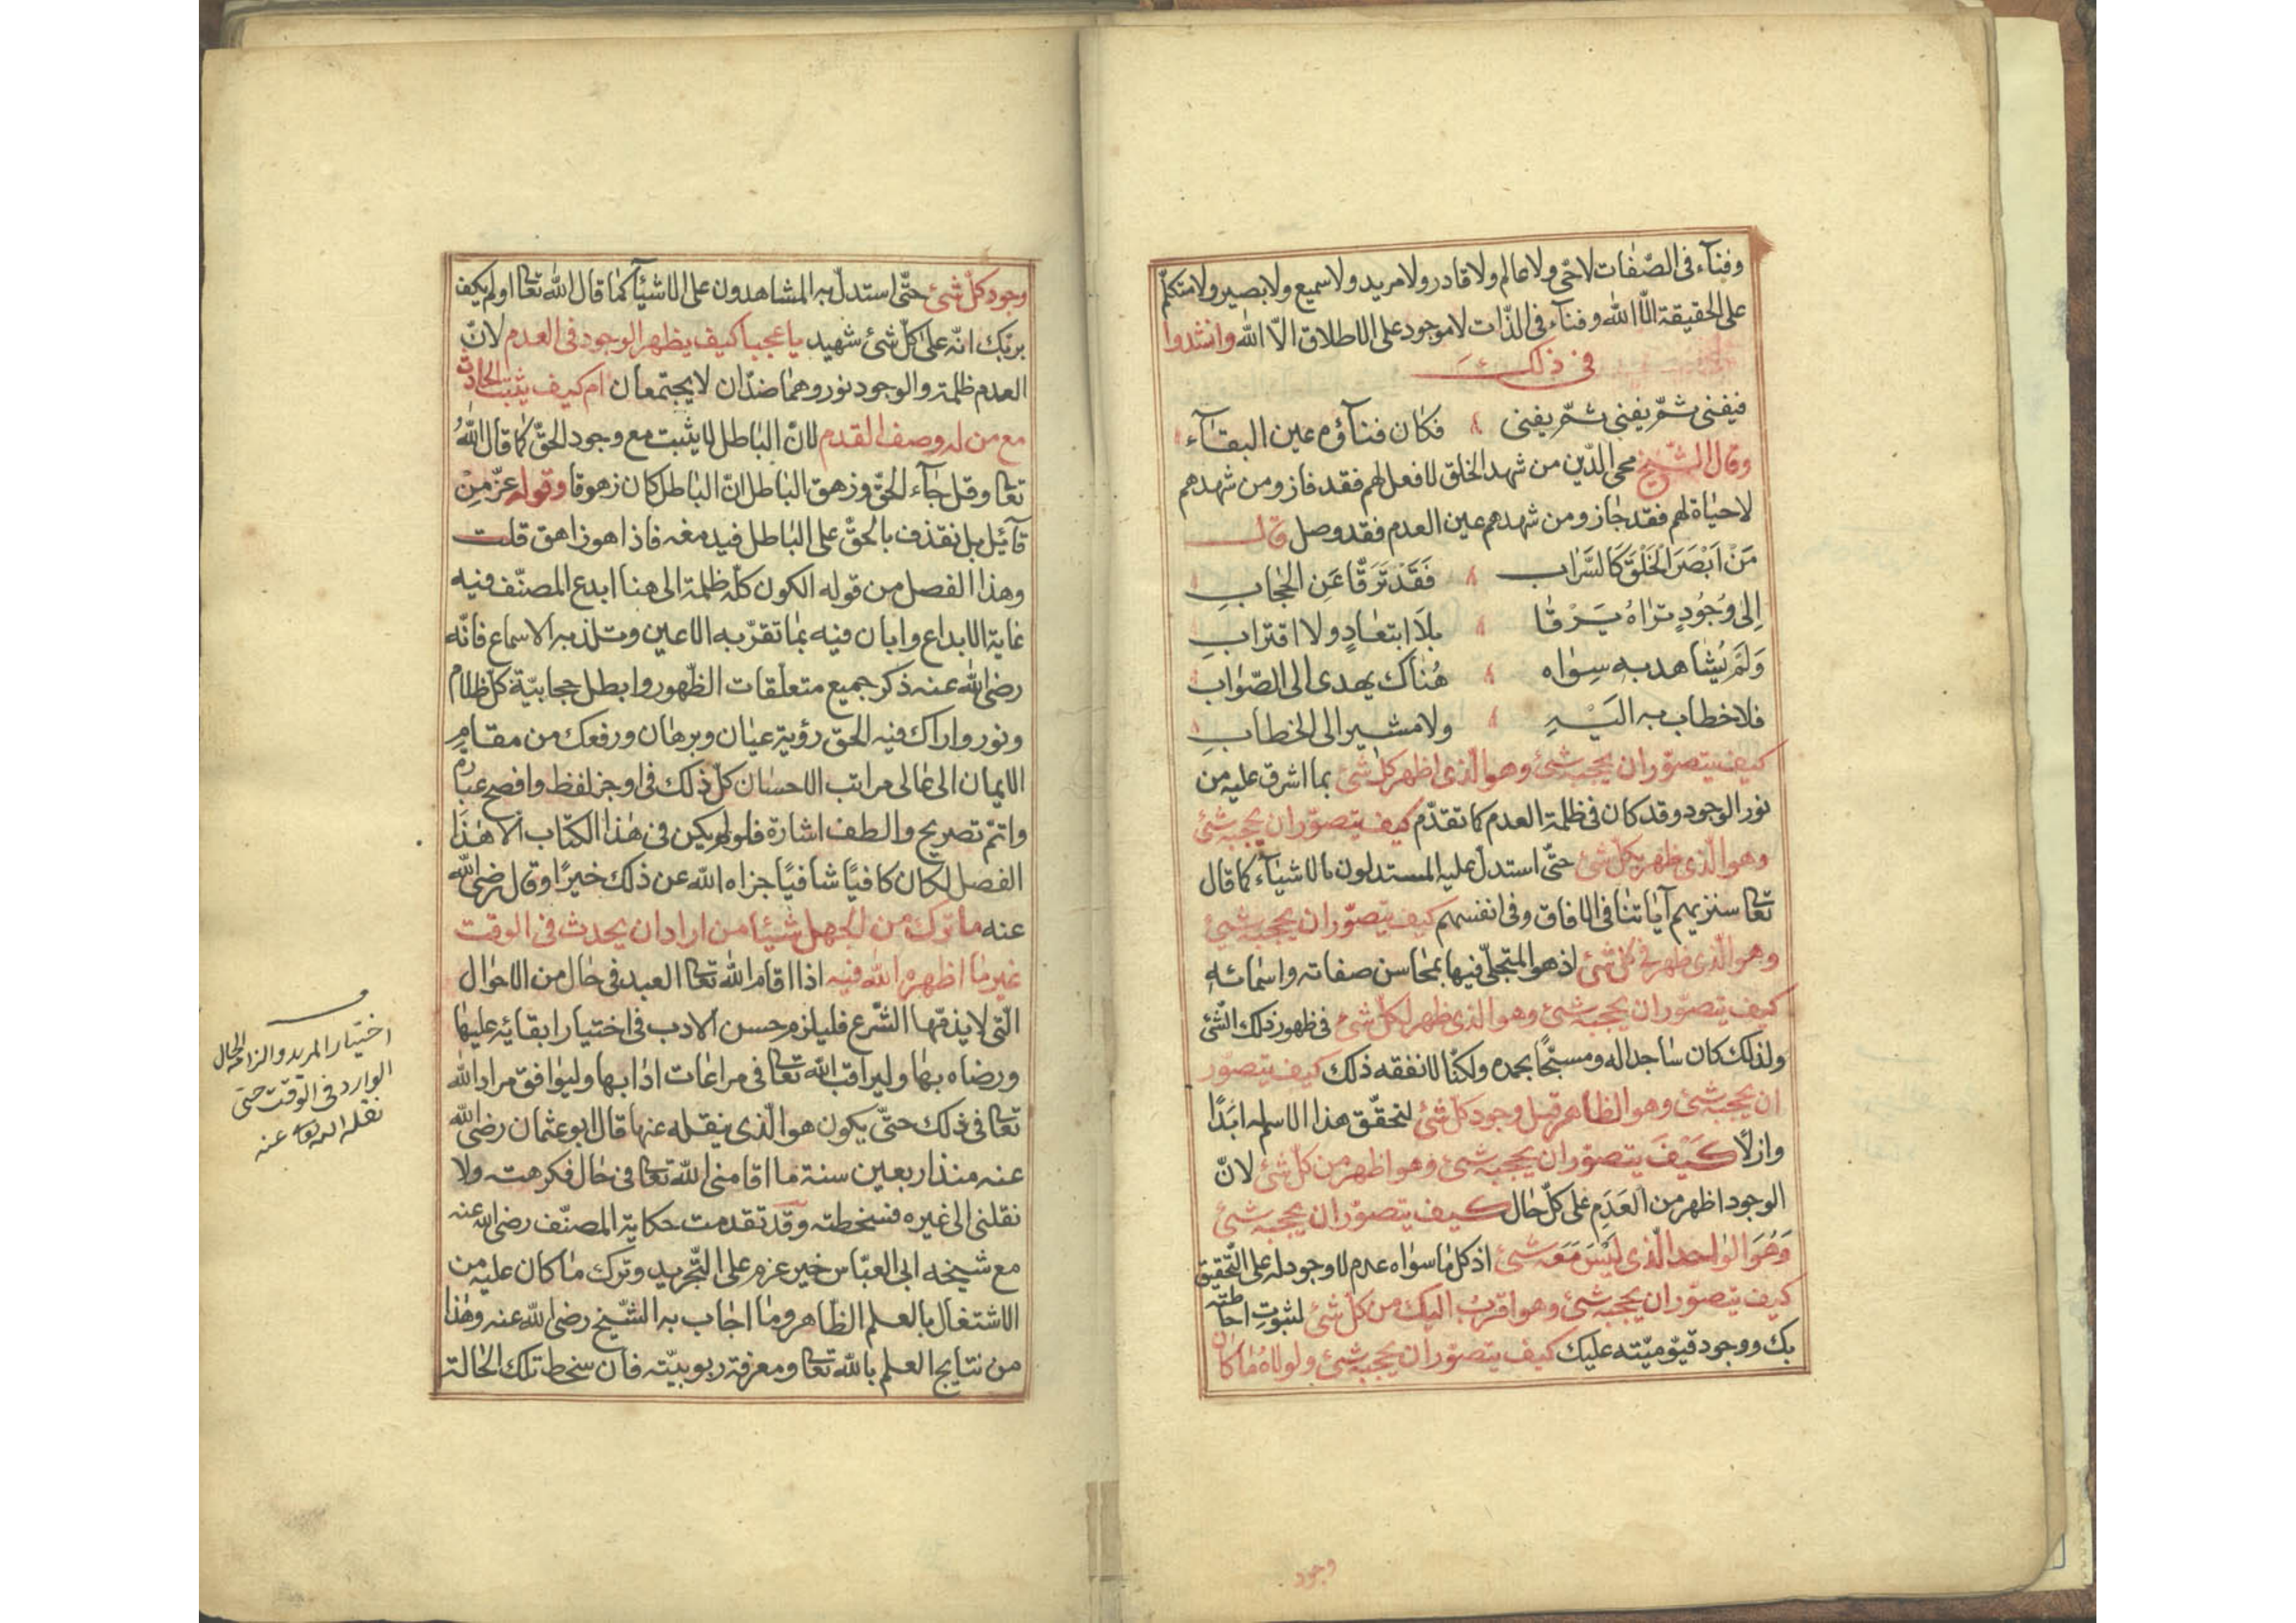 وفنآء فى الصّفات لا حى ولا عالم ولا قادر ولا مريد ولا سميع ولا بصير ولا متكلّم
على الحقيقة الّا الله وفنآء فى الذّات لا موجود على الاطلاق الّا الله وانشدوا
فى ذلك
فيفنى ثمّ يفنى ثمّ يفنى فكان فنآؤه عين البقآء
وقال الشّيخ محى الدّين من شهد الخلق لا فعل لهم فقد فاز ومن شهدهم
لا حياة لهم فقد جاز ومن شهدهم عين العدم فقد وصل قال
مَنْ اَبْصَرَ الْخَلْقَ كَالسَّرَاب فَقَدْ تَرَقَّا عَنِ الحجَابِ
اِلى وُجُودٍ تراهُ يَرْقَا بلَا ابتعَادٍ ولا اقترابِ
وَلَمْ يُشَاهد به سِوَاه هُنَاك يهدى الى الصّوَاب
فلا خطاب به اليْهِ ولا مشير الى الخطابِ
كيف يتصوّر ان يحجبه شئ وهو الّذى اظهر كلّ شئ بما اشرق عليه من
نور الوجود وقد كان فى ظلمة العدم كما تقدّم كيف يتصوّر ان يحجبه شئ
وهو الّذى ظهر بكلّ شئ حتّى استدلّ عليه المستدلون بالاشيآء كما قال
تعا سنريهم آياتنا فى الافاق وفى انفسهم كيف يتصوّر ان يحجبه شئ
وهو الّذى ظهر فى كل شئ اذ هو المتجلّى فيها بمحاسن صفاته واسمائه
كيف يتصوّر ان يحجبه شئ وهو الذى ظهر لكل شئ فى ظهور ذلك الشّئ
ولذلك كان ساجدا له ومسبّحًا بحمده ولكنّا لا نفقه ذلك كيف يتصوّر
ان يحجبه شئ وهو الظاهر قبل وجود كل شئ لتحقّق هذا الاسم له ابَدًا
وازلًا كَيْفَ يتصوّر ان يحجبه شئ وهو اظهر من كل شئ لانّ
الوجود اظهر من العَدَمِ على كلّ حال كيف يتصوّر ان يحجبه شئ
وَهُوَ الوَاحد الّذى لَيْسَ مَعَه شئ اذ كل ما سواه عدم لا وجود له على التّحقيق
كيف يتصوّر ان يحجبه شئ وهو اقربُ اليك من كل شئ لثبوت احاطته
بك ووجود قيّوميّته عليك كيف يتصوّر ان يحجبه شئ ولولاه ما كان
وجود
وجود كلّ شئ حتّى استدلّ به المشاهدون على الاشيآء كما قال الله تعا اولم يكف
بربّك انّه على كلّ شئ شهيد يا عجبا كيف يظهر الوجود فى العدم لانّ
العدم ظلمة والوجود نور وهما ضدّان لا يجتمعان ام كيف يثبت الحادث
مع من له وصف القدم لانّ الباطل لا يثبت مع وجود الحقّ كما قال اللهُ
تعا وقل جآء الحقّ وزهق الباطل انّ الباطل كان زهوقا وقوله عزّ مِنْ
قآئل بل نقذف بالحقّ على الباطل فيدمغه فاذا هو زاهق قلت
وهذا الفصل من قوله الكون كلّه ظلمة الى هنا ابدع المصنّف فيه
غاية الابداع وابان فيه بما تقرّبه الاعين وتلذ به الاسماع فانّه
رضى الله عنه ذكر جميع متعلّقات الظّهور وابطل حجابيّة كلّ ظلام
ونور واراك فيه الحق رؤية عيان وبرهان ورفعك من مقامِ
الايمان الى عالى مراتب الاحسان كلّ ذلك فى اوجز لفظ وافصح عباره
واتمّ تصريح والطف اشارة فلو لم يكن فى هذا الكتاب الا هذا
الفصل لكان كافيًا شافيًا جزاه الله عن ذلك خيرًا وقال رضى الله
عنه ما ترك من الجهل شيئا من اراد ان يحدث فى الوقت
غير ما اظهره الله فيه اذا اقام الله تعا العبد فى حال من الاحوال
الّتى لا يذمّها الشّرع فليلزم حسن الادب فى اختيار ابقائه عليها
ورضاه بها وليراقب الله تعا فى مراعات ادابها وليوافق مراد الله
تعا فى ذلك حتّى يكون هو الّذى ينقله عنها قال ابو عثمان رضى الله
عنه منذ اربعين سنة ما اقامنى الله تعا فى حال فكرهته ولا
نقلنى الى غيره فسخطته وقد تقدمت حكاية المصنّف رضى الله عنه
مع شيخه ابى العبّاس حين عزم على التّجريد وترك ما كان عليه من
الاشتغال بالعلم الظّاهر وما اجاب به الشّيخ رضى الله عنه وهذا
من نتايج العلم بالله تعا ومعرفة ربوبيّته فان سخط تلك الحالة
اختيار المريد والزامه الحال
الوارد فى الوقت حتى
نقله الله تعا عنه